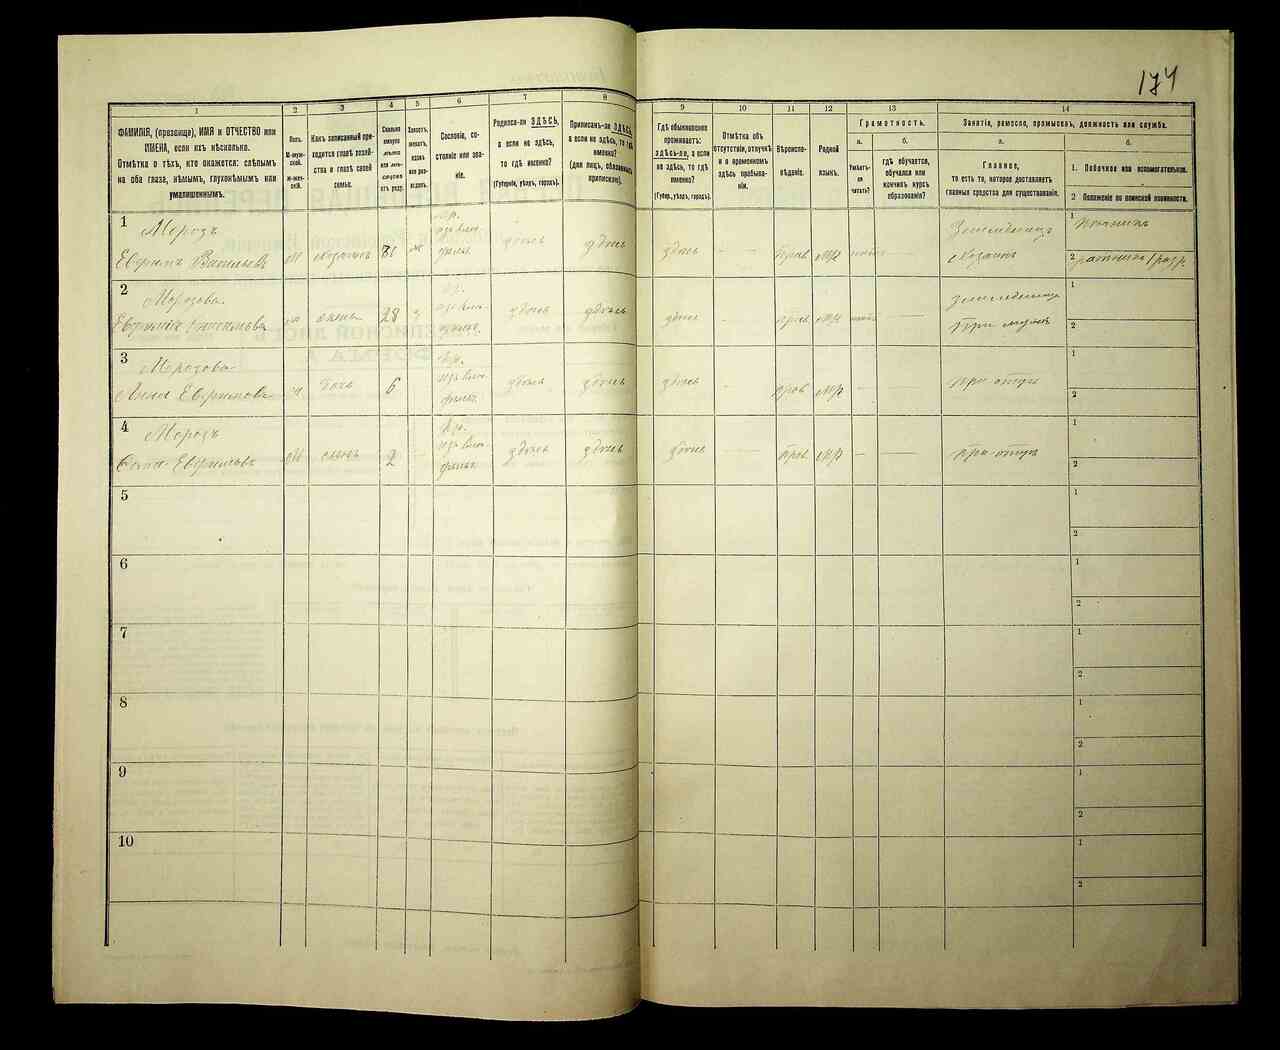 174
1
2
3
4
5
6
7
8
9
10
11
12
13
14
ФАМИЛІЯ, (прозвище), ИМЯ и ОТЧЕСТВО или
ИМЕНА, если ихъ нѣсколько.
Отмѣтка о тѣхъ, кто окажется: слѣпымъ
на оба глаза, нѣмымъ, глухонѣмымъ или
умалишеннымъ.
Полъ.
М-муж-
ской.
Ж-жен-
скій.
Какъ записанный при-
ходится главѣ хозяй-
ства и главѣ своей
семьи.
Сколько
минуло
лѣтъ
или мѣ-
сяцевъ
отъ роду.
Холостъ,
женатъ,
вдовъ
или раз-
веденъ.
Сословіе, со-
стояніе или зва-
ніе.
Родился-ли ЗДѢСЬ,
а если не здѣсь,
то гдѣ именно?
(Губернія, уѣздъ, городъ).
Приписанъ-ли ЗДѢСЬ,
а если не здѣсь, то гдѣ
именно?
(для лицъ, обязанныхъ
припискою).
Гдѣ обыкновенно
проживаетъ:
здѣсь-ли, а если
не здѣсь, то гдѣ
именно?
(Губер., уѣздъ, городъ).
Отмѣтка объ
отсутствіи, отлучкѣ
и о временномъ
здѣсь пребыва-
ніи.
Вѣроиспо-
вѣданіе.
Родной
языкъ.
Грамотность.
а.
Умѣетъ-
ли
читать?
б.
гдѣ обучается,
обучался или
кончилъ курсъ
образованія?
Занятіе, ремесло, промыселъ, должность или служба.
а.
Главное,
то есть то, которое доставляетъ
главныя средства для существованія.
б.
1. Побочное или вспомогательное.
2 Положеніе по воинской повинности.
1
Морозъ
Ефримъ Васильевъ
М
хозяинъ
31
ж
Кр.
здѣсь
здѣсь
здѣсь
— —
прав
мр
Земледелецъ
хозяинъ
1
2
ратникъ 1 разр.
2
Морозова
ж
жена
28
Кр.
здѣсь
здѣсь
здѣсь
-
прав
мр
земледелица
При мужѣ
1
2
3
Морозова
Анна Ефримова
ж
дочь
6
-
Кр.
здѣсь
здѣсь
здѣсь
-
прав
мр
— —
при отцѣ
1
2
4
Морозъ
М
сынъ
2
-
Кр.
здѣсь
здѣсь
здѣсь
—
прав
мр
— —
при отцѣ
1
2
5
1
2
6
1
2
7
1
2
8
1
2
9
1
2
10
1
2